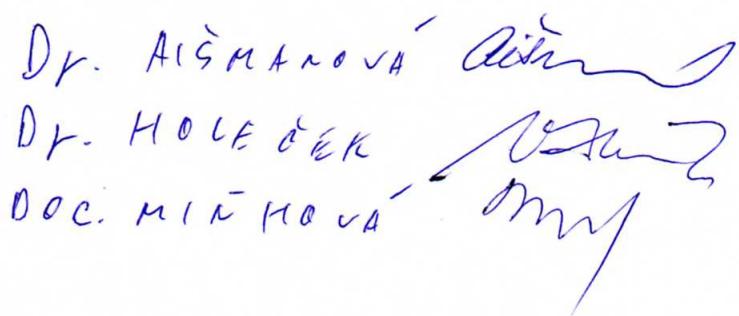 Dr. AIŠMANOVÁ
Dr. HOLEČEK
DOC. MIŇHOVÁ